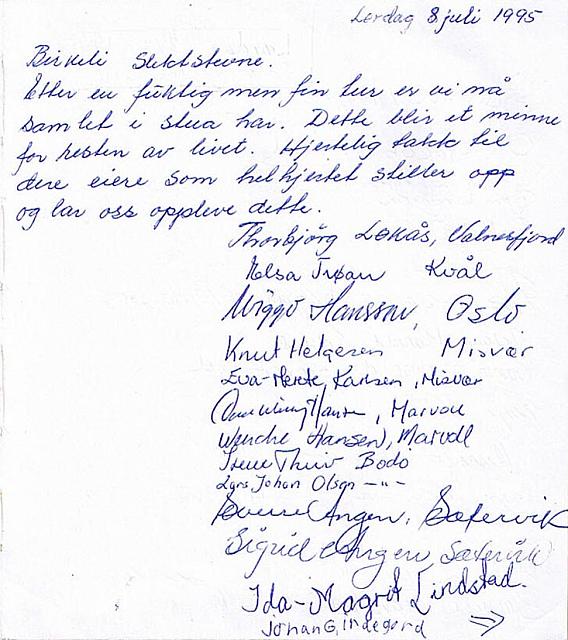 Lørdag 8 juli 1995
Birkeli Slektstevne.
Etter en fuktig men fin tur er vi nå
samlet i stua har. Dette blir et minne
for resten av livet. Hjertelig takk til
dere eiere som helhjertet stiller opp
og lar oss oppleve dette.
Thorbjörg Løkås, Valnesfjord
Kvål
Wiggo Hanssen, Oslo
Knut Helgesen Misvær
Eva-Merete Karlsen, Misvær
, Marvoll
Wenche Hansen, Marvoll
Irene Bodø
Lars Johan Olsen —"—
Sverre Angen, Sætervik
Sigrid Angen Sætervik
Ida-Magrit Lindstad.
Johan G, indegard